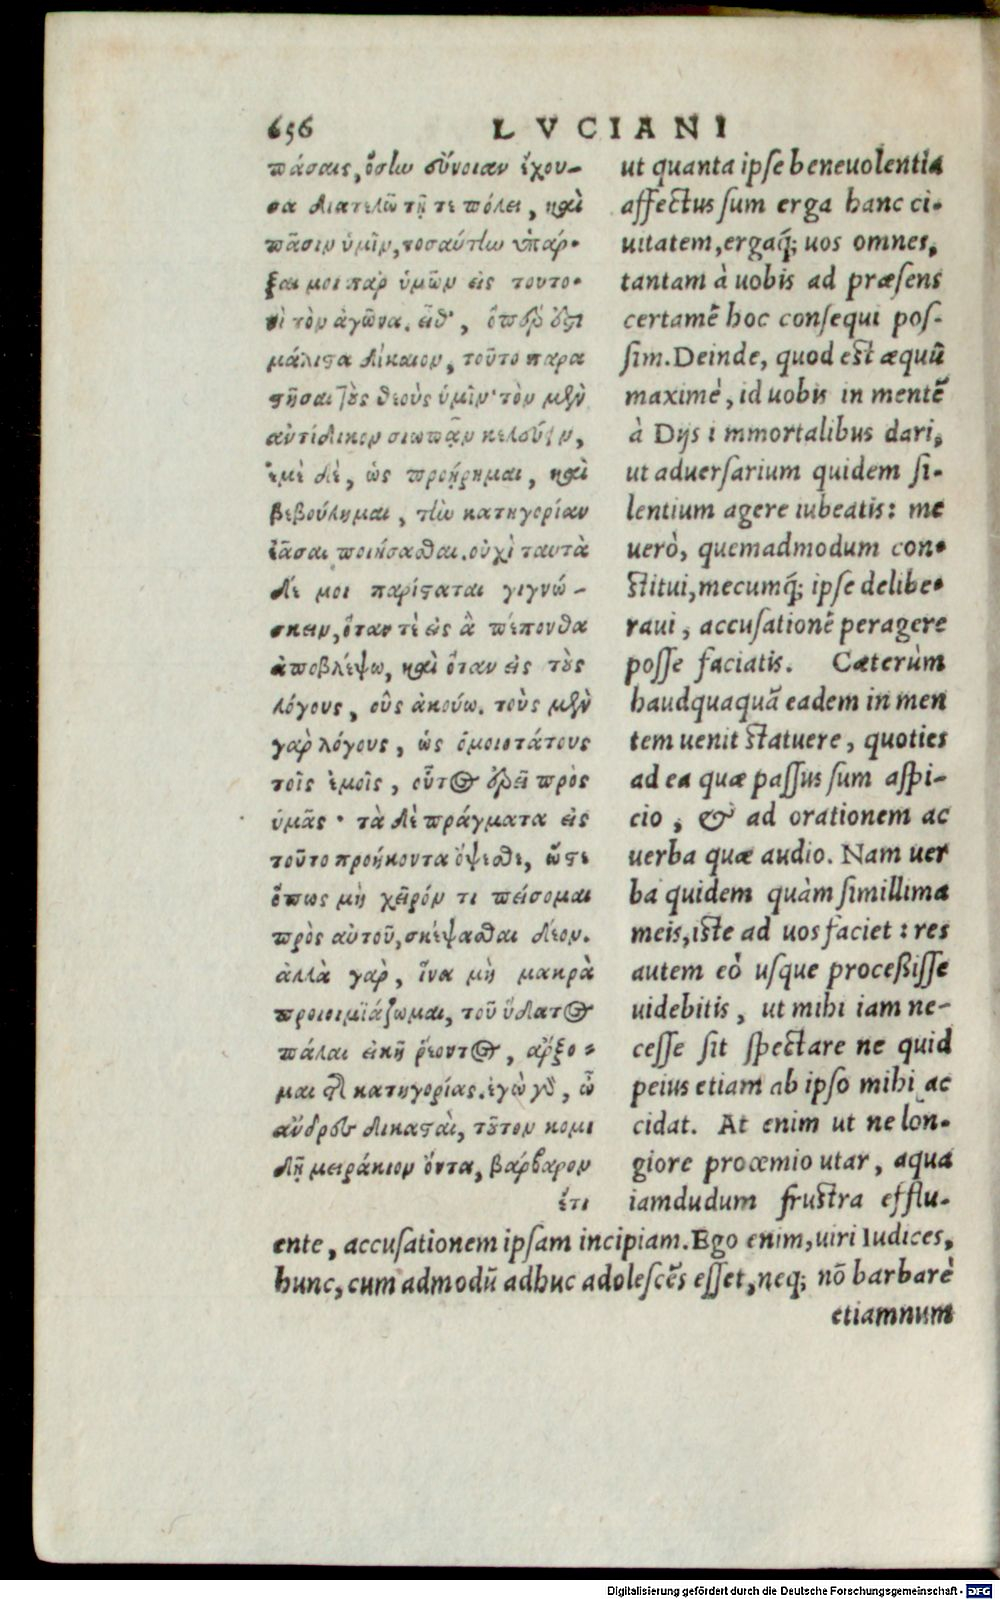 656 LVCIANI
πάσαις, ὅσην εὔνοιαν ἔχου-
σα διατελῶ τῇ τε πόλει, καὶ
πᾶσιν ὑμῖν, τοσαύτην ὑπάρ-
ξαι μοι παρ ὑμῶν εἰς τουτο-
νὶ τὸν ἀγῶνα. εἶθ', ὅπερ ἐστι
μάλιστα δίκαιον, τοῦτο παρα
στῆσαι τοὺς θεοὺς ὑμῖν· τὸν μὲν
ἀντίδικον σιωπᾷν κελεύειν,
ἐμὲ δὲ, ὡς προῄρημαι, καὶ
βεβούλημαι, τὴν κατηγορίαν
ἐᾶσαι ποιήσασθαι. οὐχὶ ταυτὰ
δέ μοι παρίσταται γιγνώ-
σκειν, ὅταν τὲ εἰς ἃ πέπονθα
ἀποβλέψω, καὶ ὅταν εἰς τοὺς
λόγους, οὓς ἀκούω. τοὺς μὲν
γὰρ λόγους, ὡς ὁμοιοτάτους
τοῖς ἐμοῖς, οὗτος ἐρεῖ πρὸς
ὑμᾶς· τὰ δὲ πράγματα εἰς
τοῦτο προήκοντα ὄψεσθε, ὥστε
ὅπως μὴ χεῖρόν τι πείσομαι
πρὸς αὐτοῦ, σκέψασθαι δέον.
ἀλλὰ γὰρ, ἵνα μὴ μακρὰ
προιοιμϊάζωμαι, τοῦ ὕδατος
πάλαι εἰκῆ ῥέοντος, ἄρξο-
μαι τῆς κατηγορίας. ἐγὼ γὰρ, ὦ
ἄνδρες δικασταὶ, τοῦτον κομι
δῇ μειράκιον ὄντα, βάρβαρον
ἔτι
ut quanta ipse beneuolentia
affectus sum erga hanc ci-
uitatem, ergaq́; uos omnes,
tantam à uobis ad præsens
certamẽ hoc consequi pos-
sim. Deinde, quod est æquũ
maximè, id uobis in mentẽ
à Dijs immortalibus dari,
ut aduersarium quidem si-
lentium agere iubeatis: me
uerò, quemadmodum con-
stitui, mecumq́; ipse delibe-
raui, accusationẽ peragere
posse faciatis. Cæterùm
haudquaquã eadem in men
tem uenit statuere, quoties
ad ea quæ passus sum aspi-
cio, & ad orationem ac
uerba quæ audio. Nam uer
ba quidem quàm simillima
meis, iste ad uos faciet: res
autem eò usque proceßisse
uidebitis, ut mihi iam ne-
cesse sit spectare ne quid
peius etiam ab ipso mihi ac
cidat. At enim ut ne lon-
giore proœmio utar, aqua
iamdudum frustra efflu-
ente, accusationem ipsam incipiam. Ego enim, uiri Iudices,
hunc, cum admodũ adhuc adolescẽs esset, neq; nõ barbarè
etiamnum
Digitalisierung gefördert durch die Deutsche Forschungsgemeinschaft - DFG